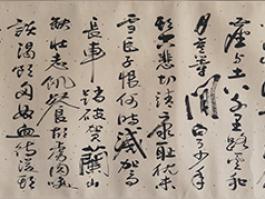 塵與土八千里路雲和
月莫等閒白了少年
頭空悲切靖康恥猶未
雪臣子恨何時滅駕
長車踏破賀蘭山
缺壯志飢餐胡虜肉笑
談渴飲匈奴血待從頭